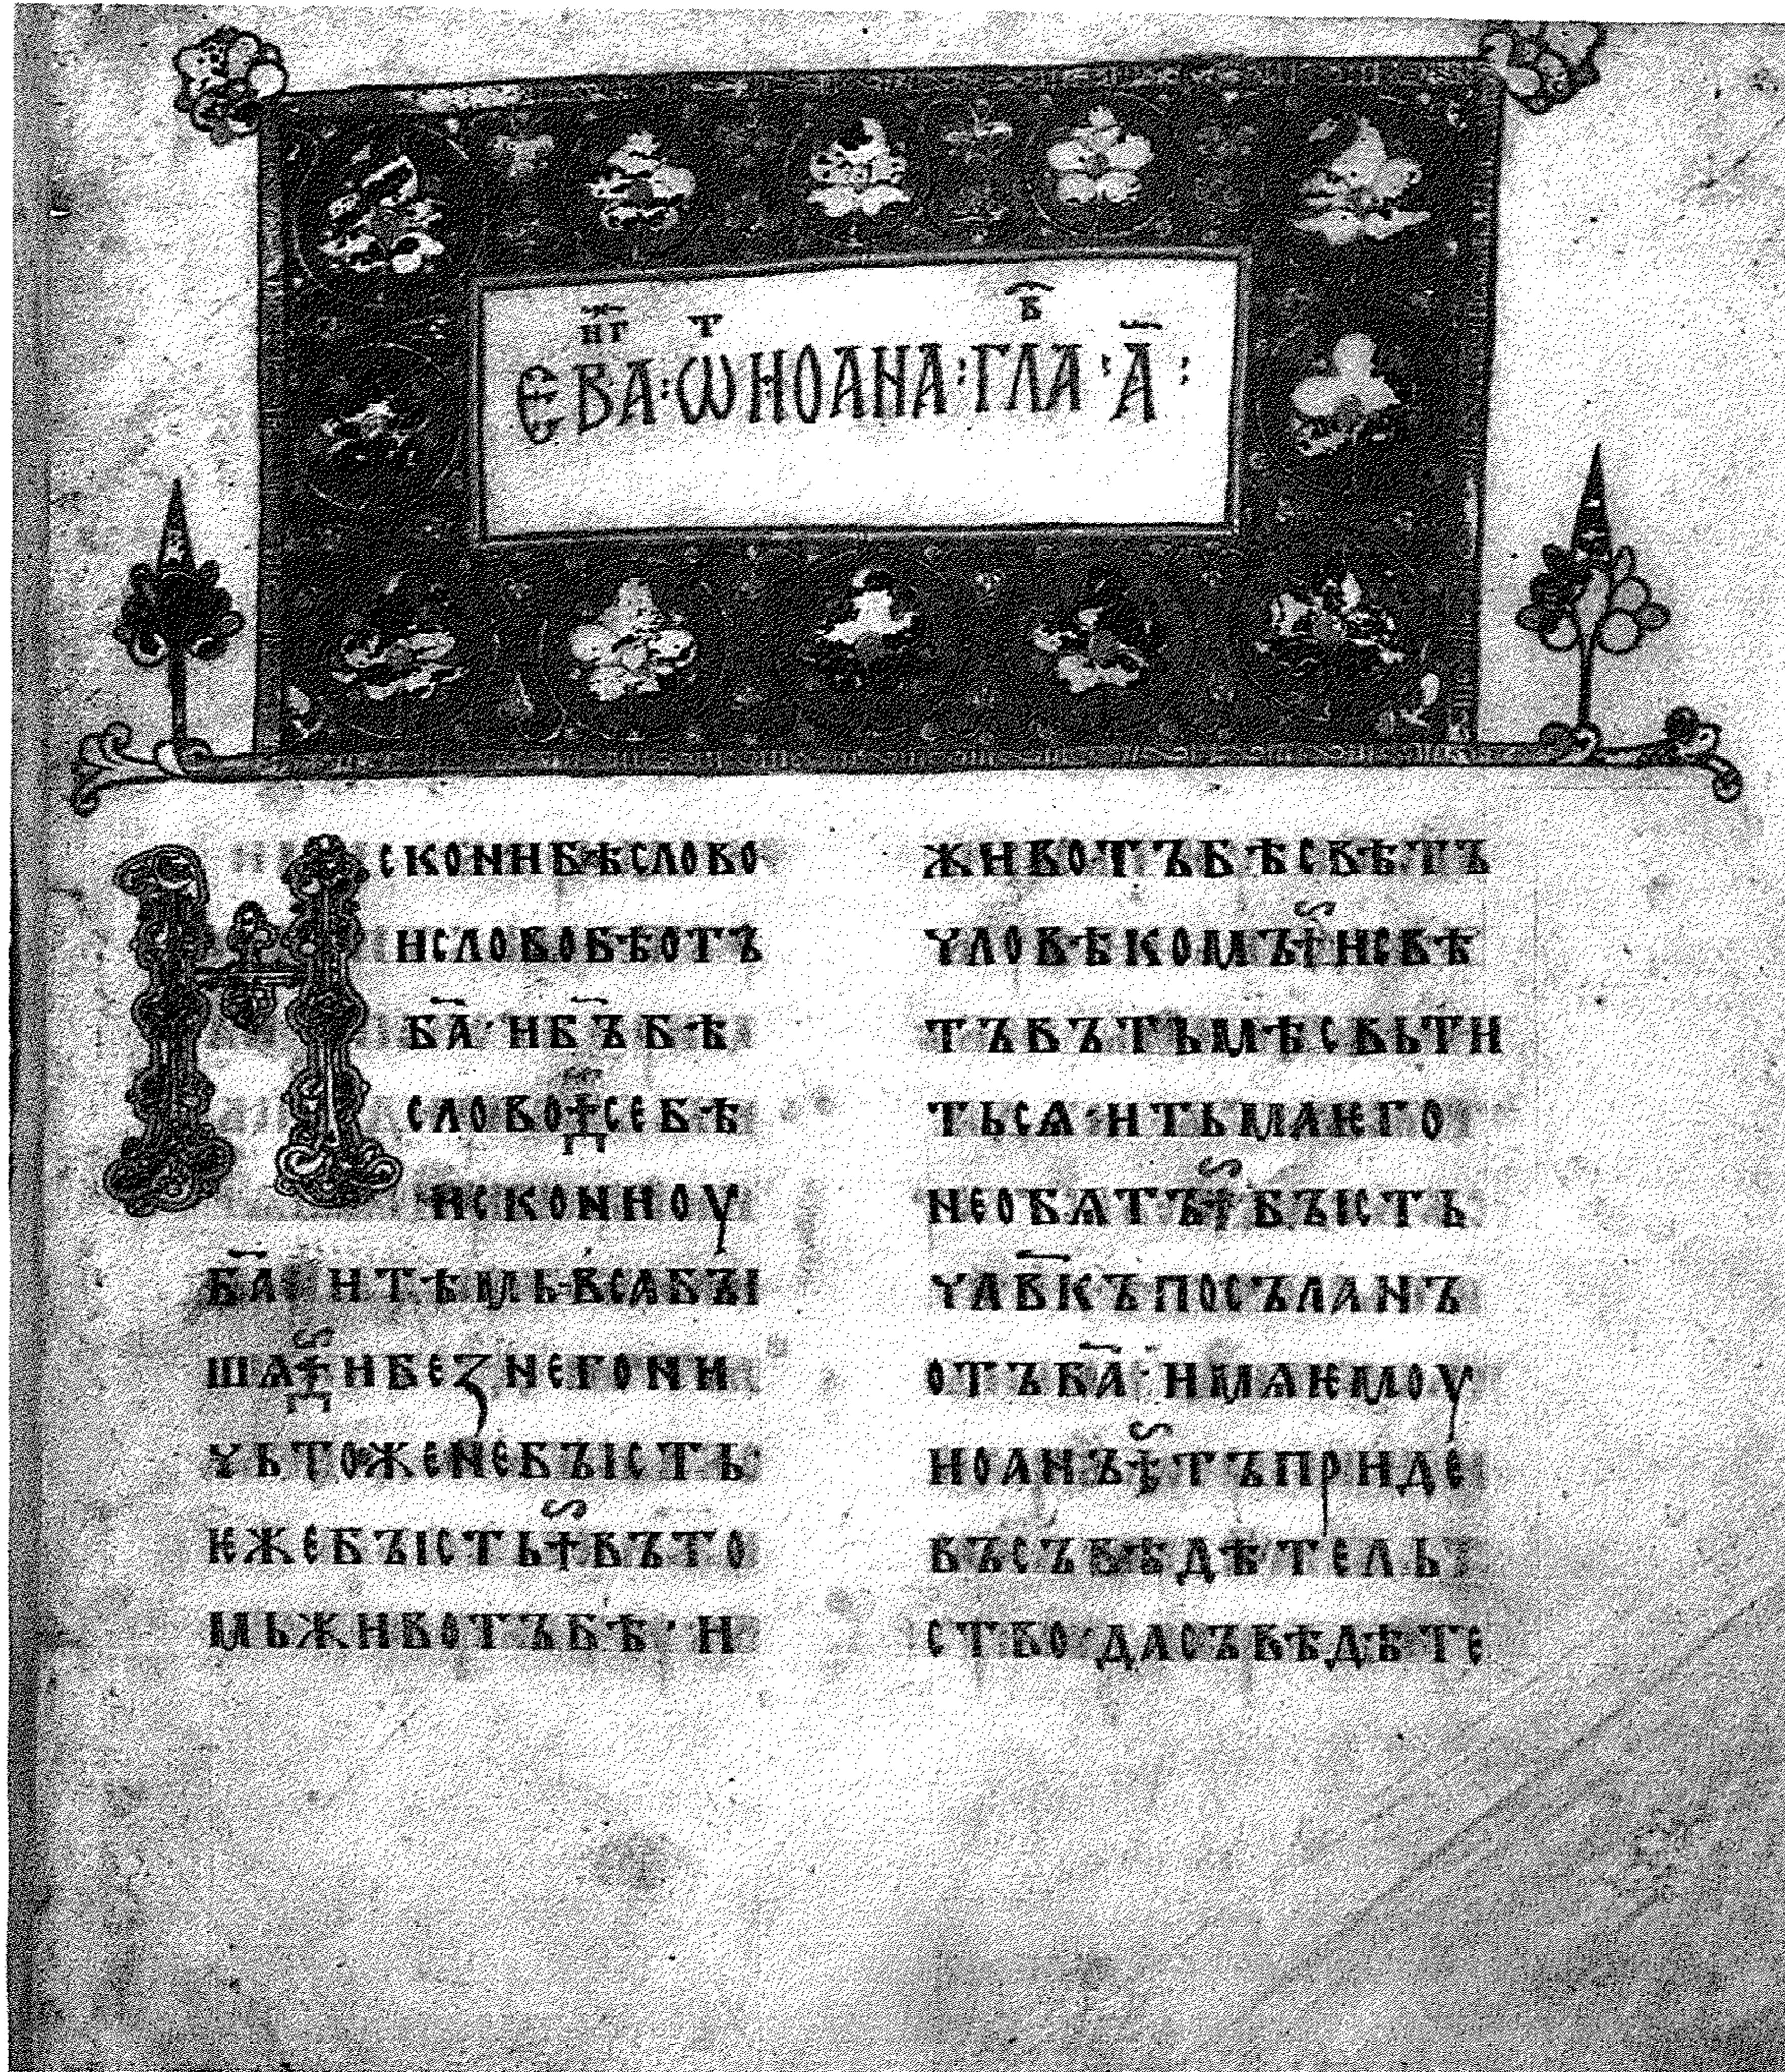 ЄВА҃НГ : ѠТ ИОАНА : ГЛАВ : А҃ :
Искони бѣ слово
и слово бѣ отъ
б҃а · и б҃ъ бѣ
слово ⁘ се бѣ
искони оу
б҃а · и тѣмь в҃са бꙑ
шѧ ⁘ и беꙁ него ни
чьтоже не бꙑсть ·
ѥже бꙑсть ⁘ въ то
мь животъ бѣ · и
животъ бѣ свѣтъ
чловѣкомъ ⁘ и свѣ
тъ въ тьмѣ свьти
тьсѧ · и тьма ѥго
не обѧтъ ⁘ бꙑсть
чл҃вкъ посъланъ
отъ б҃а · имѧ ѥмоу
иоанъ ⁘ тъ приде
въ съвѣдѣтель
ство · да съвѣдѣте